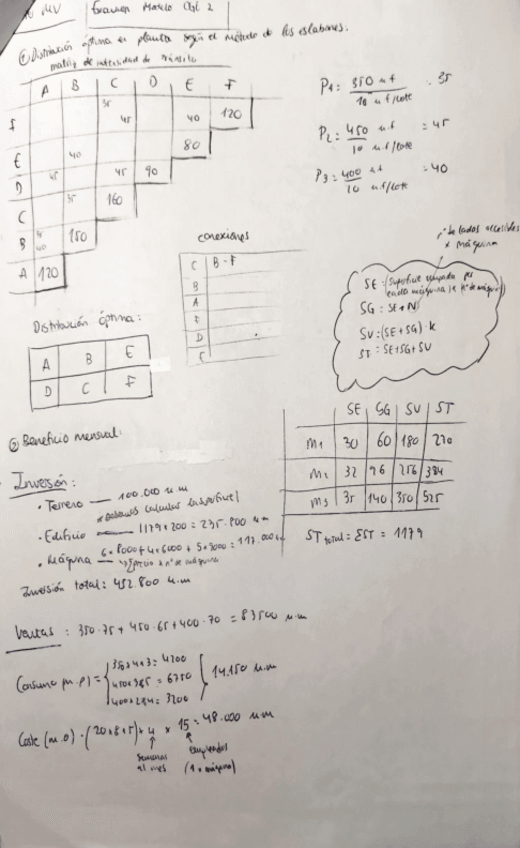 Examen Modelo Cgl 2
① Distribución óptima en planta según el método de los eslabones.
matriz de intensidad de tránsito
A B C D E F
F 35 45 40 120
E 40 80
D 45 45 90
C 35 160
B 150
A 120
P1 = 350 u.f / 10 u.f/lote = 35
P2 = 450 u.f / 10 u.f/lote = 45
P3 = 400 u.f / 10 u.f/lote = 40
conexiones
C B - F
B
A
F
D
E
nº de lados accesibles x máquina
SE: (Superficie ocupada por cada máquina) x (nº de máquinas)
SG: SE x N
SV: (SE+SG) · k
ST = SE+SG+SV
Distribución óptima:
A B E
D C F
SE SG SV ST
M1 30 60 180 270
M2 32 96 256 384
M3 35 140 350 525
ST total = ΣST = 1179
② Beneficio mensual:
Inversión:
• Terreno — 100.000 u.m
• Edificio — 1179 x 200 = 235.800 u.m
• Máquina — 6 x 8000 + 4 x 6000 + 5 x 9000 = 117.000 u.m
Inversión total: 452.800 u.m
Ventas: 350·75 + 450·65 + 400·70 = 83500 u.m
Consumo (m.p) =
350 x 4 x 3 = 4200
450 x 3 x 5 = 6750
400 x 2 x 4 = 3200
14.150 u.m
Coste (m.o) = (20 x 8 x 5) x 4 x 15 = 48.000 u.m
semanas al mes
empleados
(1 x máquina)